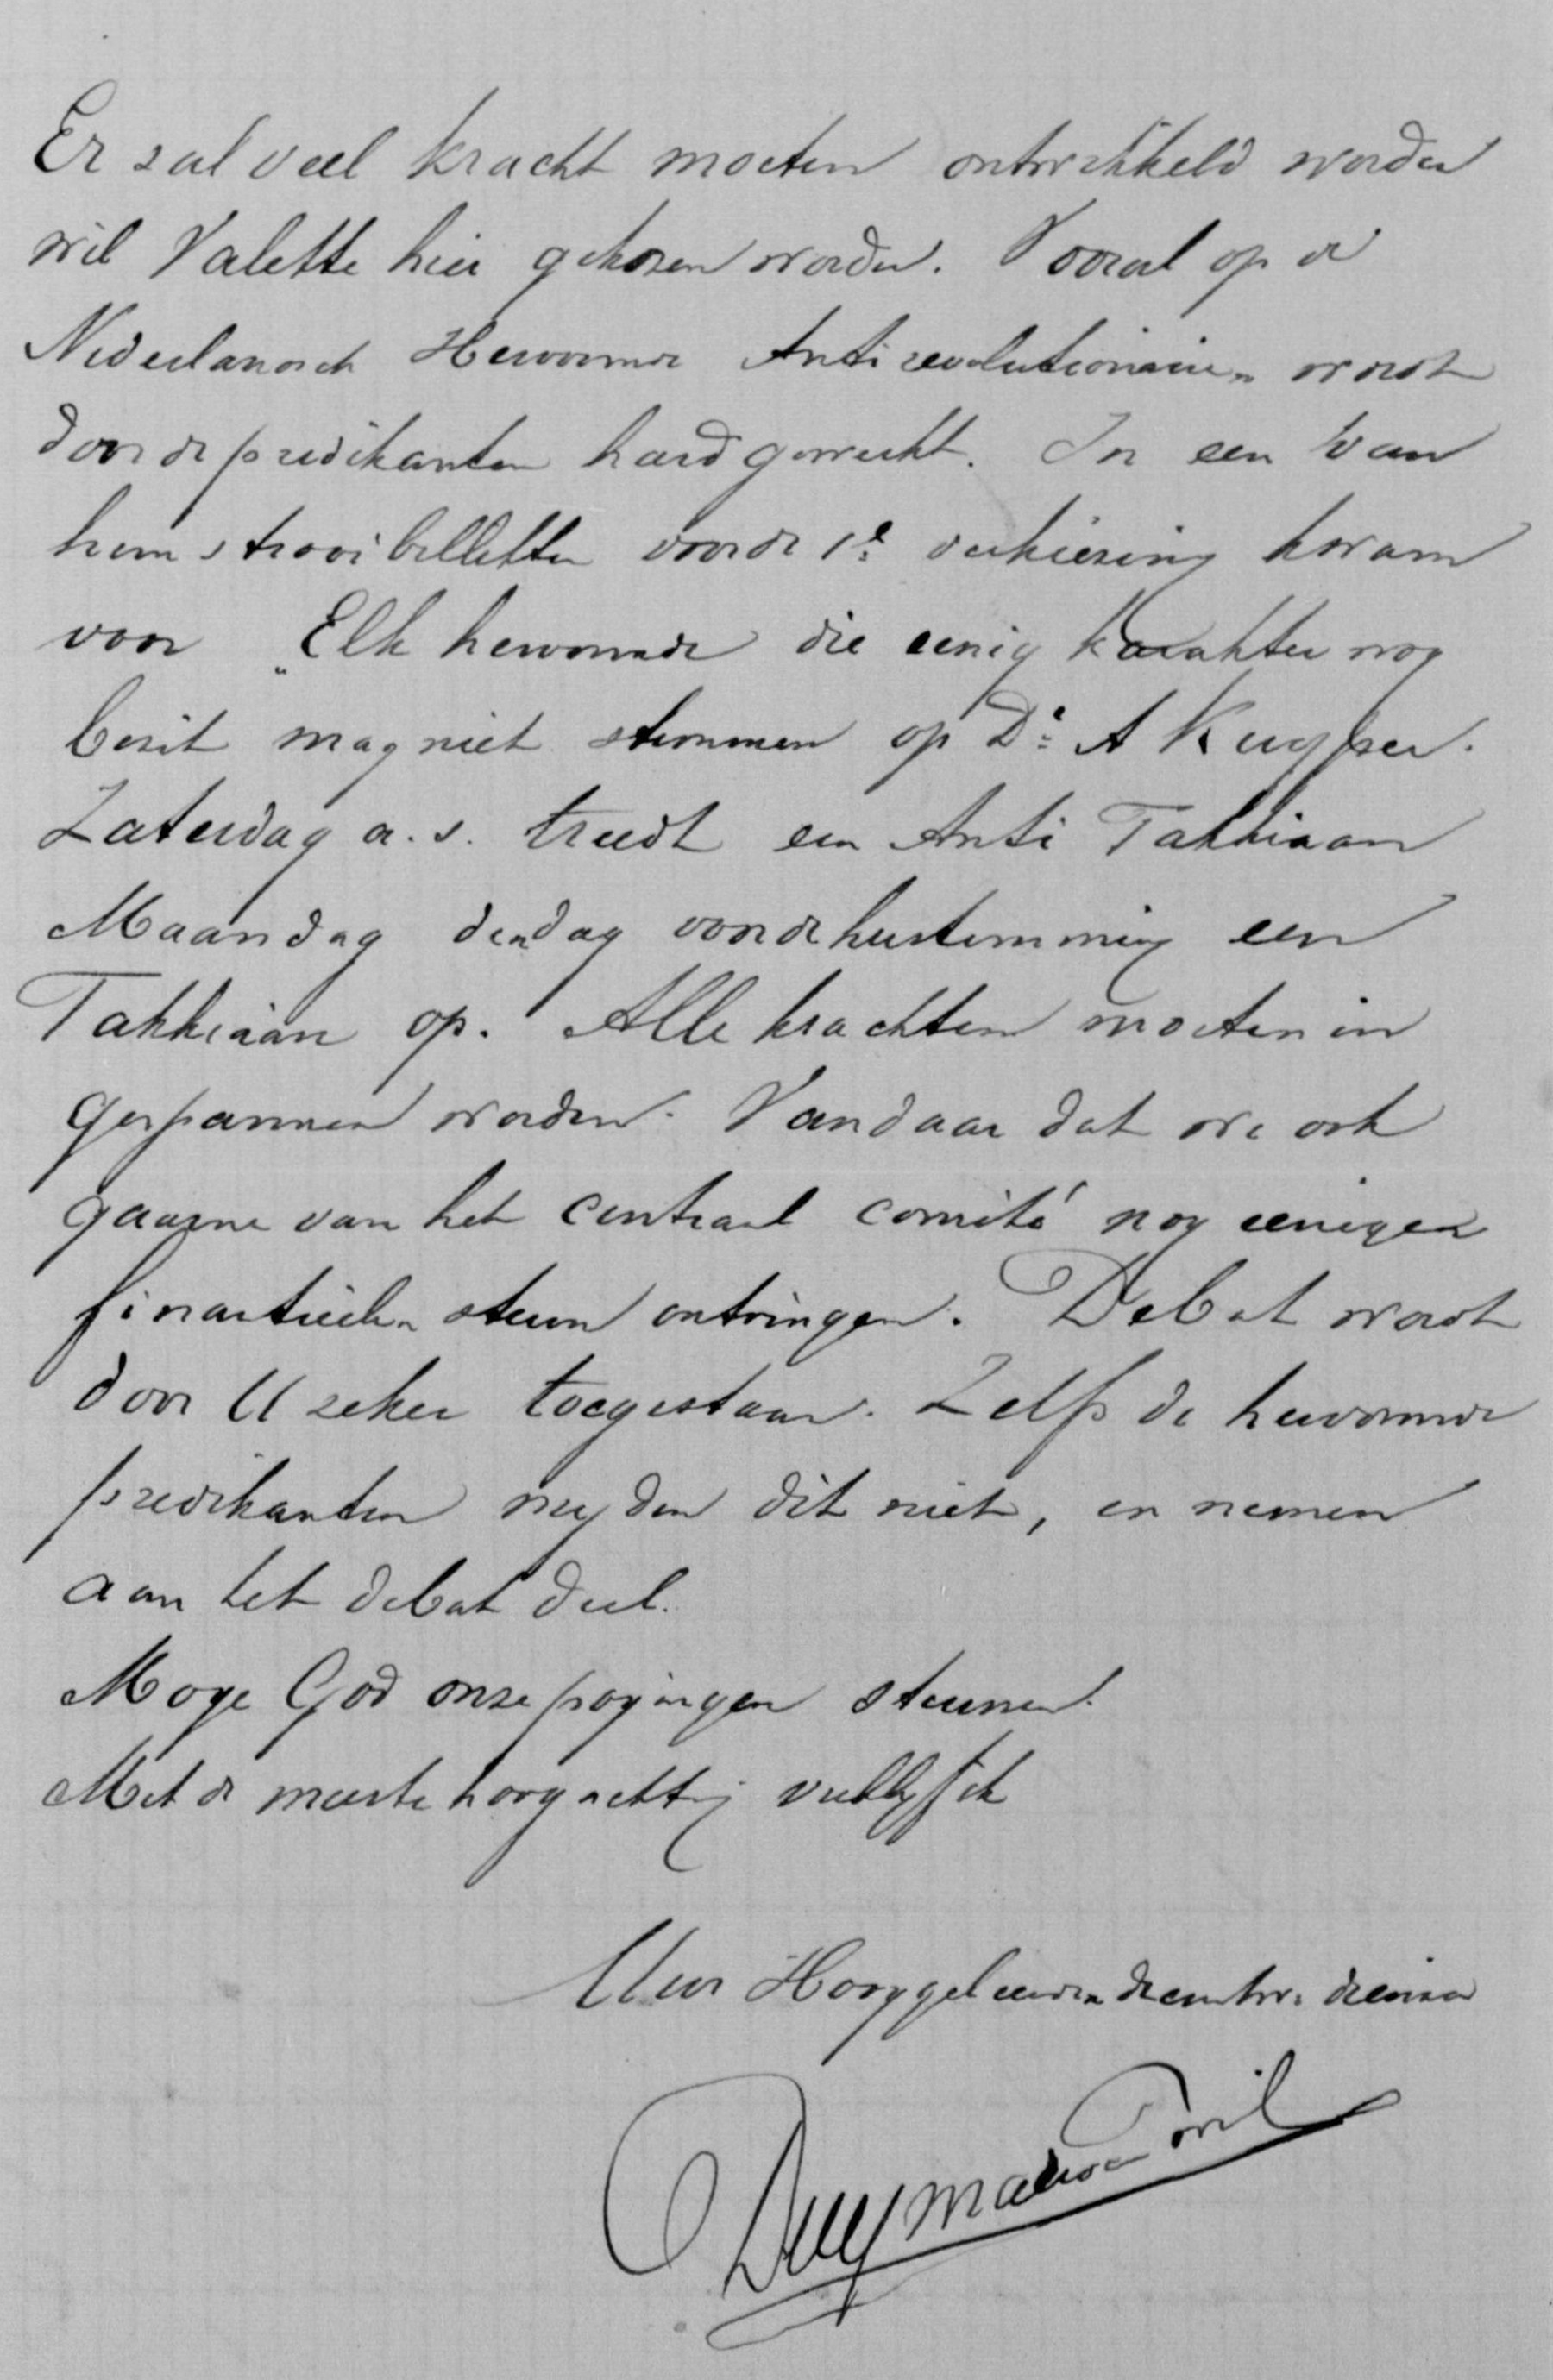 Er zal veel kracht moeten ontwikkeld worden
wil Valette hier gekozen worden. Vooral op de
Nederlandsch Hervormde Antirevolutionairen wordt
door de predikanten hard gewerkt. In een van
hun strooibilletten voor de 1e verkiezing kwam
voor „Elk hervormde die eenig karakter nog
bezit mag niet stemmen op Dr A Kuyper.
Zaterdag a.s. treedt een Anti Takkiaan
Maandag den dag voor de herstemming een
Takkiaan op. Alle krachten moeten in
gespannen worden. Vandaar dat we ook
gaarne van het centraal comité nog eenigen
finantieelen steun ontvingen. Debat wordt
door U zeker toegestaan. Zelfs de hervormde
predikanten myden dit niet, en nemen
aan het debat deel.
Moge God onze pogingen steunen.
Met de meeste hoogachting verblyf ik
Uw Hooggeleerden dienstw. dienaar
Duymaer van Twist